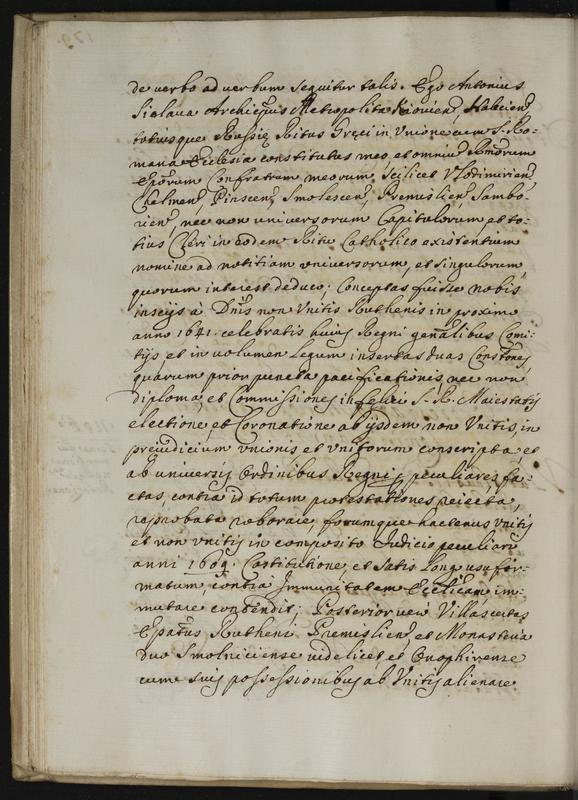 de verbo ad verbum sequitur talis. Ego Antonius
Sielava Archiep̃us Metropolita Kiovien̄, Halicien̄
totiusque Russię Ritus Gręci in Unione cum S. Ro-
mana Ecclesia constitutus meo, et omniũ Rmorum
Ep̃orum Confratrum meorum, Scilicet Vlodimirien̄
Chelmen̄ Pinscen̄ Smolescen̄, Premislien̄ Sambo-
rien̄, nec non universorum Capitulorum, et to-
tius Cleri in eodem Ritu Catholico existentium
nomine ad notitiam universorum, et singulorum,
quorum interest deduco; Conceptas fuisse nobis
inscijs à Dñis non Unitis Ruthenis in proximè
anno 1641. celebratis huius Regni gen̄alibus Comi-
tijs et in volumen legum insertas duas Consto̅nes,
quarum prior puncta pacificationis, nec non
diploma, et Commissiones in felici S. R. Maiestatis
electione, et Coronatione ab ijsdem non Unitis, in
prejudicium unionis et Unitorum conscripta, et
ab universis Ordinibus Regni per peculiares fa-
ctas, contra id totum protestationes reiecta,
reprobata roborare, forumque hactenus Unitis
et non Unitis in composito Judicio peculiari
anni 1609. Costitutione, et satis longo usu for-
matum, contra Immunitatem Ecclicam im-
mutare contendit; Posterior verò Villas certas
Ep̃atus Rutheni Premislien̄ et Monasteria
duo Smolniciense videlicet et Onophriense
cum suis possessionibus ab Unitis alienare